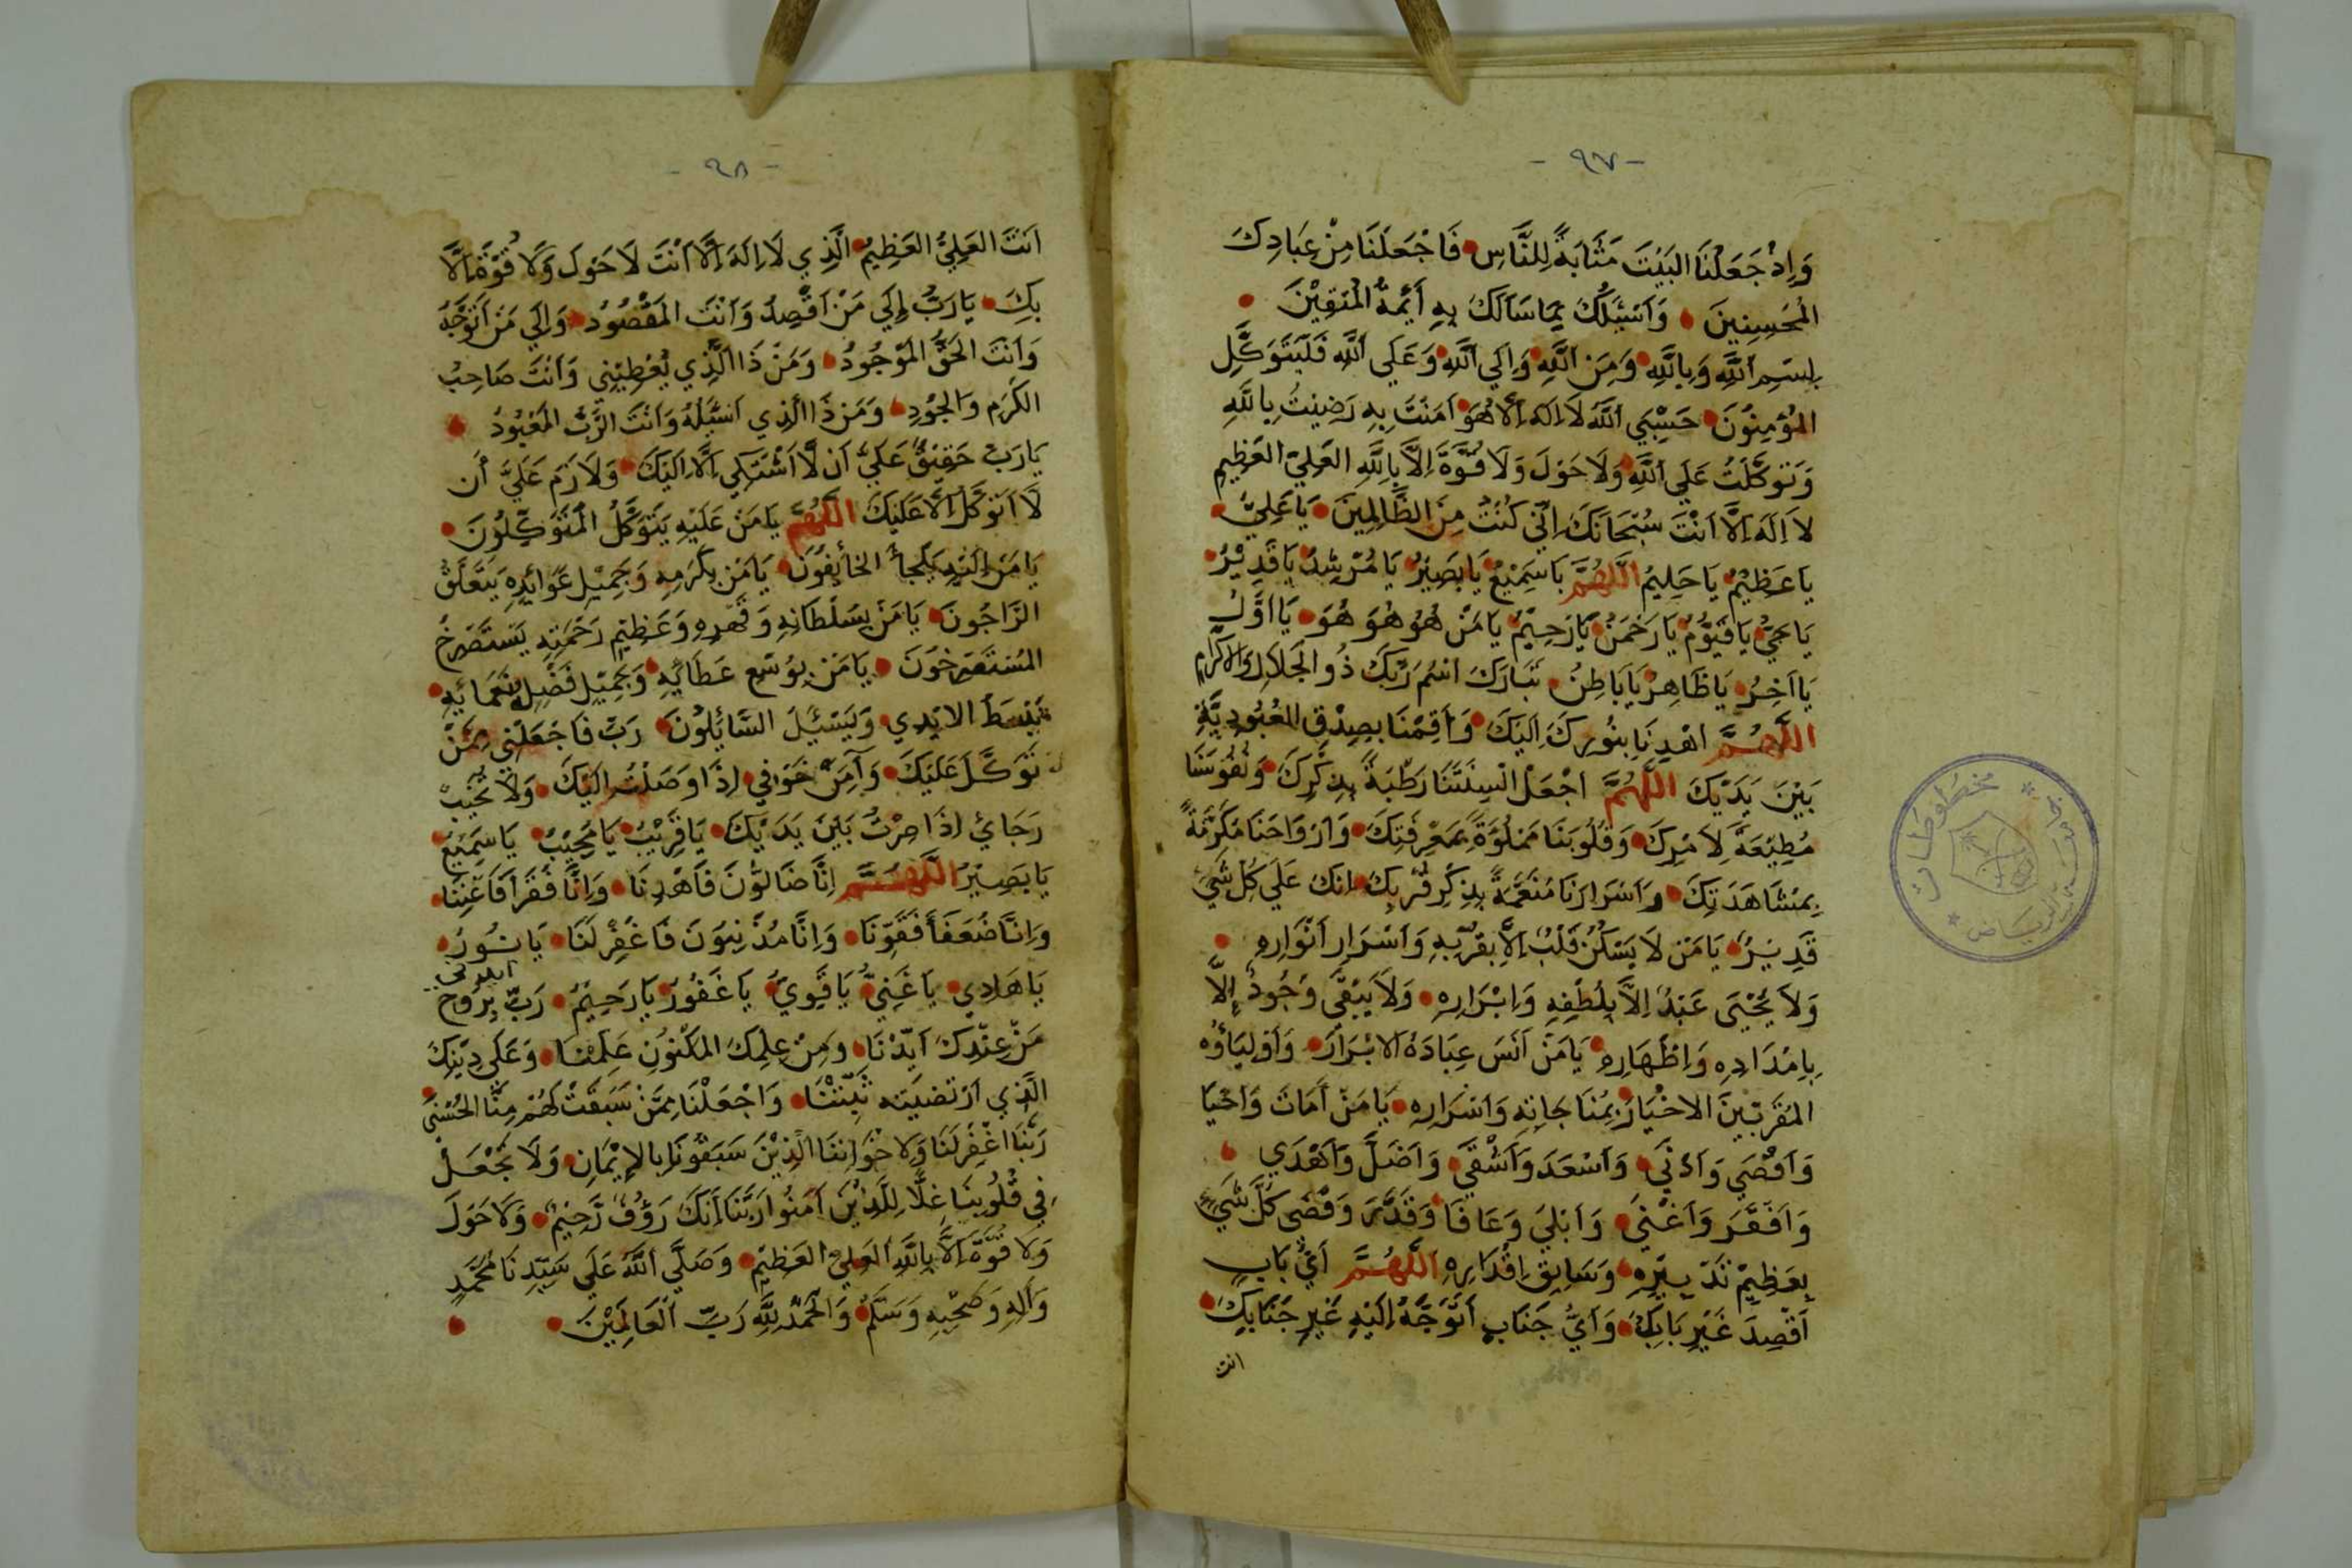 - ٩٧ -
وَاِذْ جَعَلْنَا البَيْتَ مَثَابَةً لِلنَّاسِ فَاجْعَلْنَا مِنْ عِبَادِكَ
المُحْسِنِينَ وَاَسْئَلُكَ بِمَا سَاَلَكَ بِهِ أَئِمَّةُ المُتَّقِيْنَ
بِسْمِ اللَّهِ وَبِاللَّهِ وَمِنَ اللَّهِ وَاِلَي اللَّهِ وَعَلَي اللَّهِ فَلْيَتَوَكَّلِ
المُؤْمِنُونَ حَسْبِيَ اللَّهُ لَا اِلَهَ اِلَّا هُوَ اَمَنْتُ بِهِ رَضِيْتُ بِاللَّهِ
وَتَوَكَّلْتُ عَلَي اللَّهِ وَلَا حَوْلَ وَلَا قُوَّةَ اِلَّا بِاللَّهِ العَلِيِّ العَظِيمِ
لَا اِلَهَ اِلَّا اَنْتَ سُبْحَانَكَ اِنِّي كُنْتُ مِنَ الظَّالِمِينَ يَا عَلِيُّ
يَا عَظِيْمُ يَا حَلِيمُ اللَّهُمَّ يَا سَمِيْعُ يَا بَصِيْرُ يَا مُرْشِدُ يَا قَدِيْرُ
يَا حَيُّ يَا قَيُّوْمُ يَا رَحْمَنُ يَا رَحِيْمُ يَا مَنْ هُوَ هُوَ هُوَ يَا اَوَّلُ
يَا اَخِرُ يَا ظَاهِرُ يَا بَاطِنُ تَبَارَكَ اسْمُ رَبِّكَ ذُو الجَلَالِ وَالاكْرَامِ
اللَّهُمَّ اهْدِنَا بِنُورِكَ اِلَيْكَ وَاَقِمْنَا بِصِدْقِ العُبُودِيَّةِ
بَيْنَ يَدَيْكَ اللَّهُمَّ اجْعَلْ اَلْسِنَتَنَا رَطْبَةً بِذِكْرِكَ وَنُفُوسَنَا
مُطِيْعَةً لِاَمْرِكَ وَقُلُوبَنَا مَمْلُوَةً بِمَعْرِفَتِكَ وَاَرْوَاحَنَا مُكَرَّمَةً
بِمُشَاهَدَتِكَ وَاَسْرَارَنَا مُنَعَّمَةً بِذِكْرِ قُرْبِكَ اِنَّكَ عَلَي كُلِّ شَيْءٍ
قَدِيْرُ يَا مَنْ لَا يَسْكُنُ قَلْبٌ اِلَّا بِقُرْبِهِ وَاَسْرَارِ اَنْوَارِهِ
وَلَا يُحْيَى عَبْدٌ اِلَّا بِلُطْفِهِ وَاِبْرَارِهِ وَلَا يَبْقَى وُجُودٌ اِلَّا
بِاِمْدَادِهِ وَاِظْهَارِهِ يَا مَنْ اَنَسَ عِبَادَهُ الاَبْرَارَ وَاَوْلِيَاؤُه
المُقَرَّبِينَ الاَخْيَارَ بِمُنَاجَاتِهِ وَاَسْرَارِهِ يَا مَنْ أَمَاتَ وَاَحْيَا
وَاَقْصَي وَاَدْنَي وَاَسْعَدَ وَاَشْقَي وَاَضَلَّ وَاَهْدَي
وَاَفْقَرَ وَاَغْنَي وَاَبْلَي وَعَافَا وَقَدَّرَ وَقَضَى كُلَّ شَيْءٍ
بِعَظِيْمِ تَدْبِيْرِهِ وَسَابِقِ اِقْدَارِهِ اللَّهُمَّ اَيُّ بَابٍ
اَقْصِدَ غَيْرِ بَابِكَ وَاَيُّ جَنَابٍ اَتَوَجَّهُ اِلَيْهِ غَيْرِ جَنَابِكَ
انت
مخطوطات
الرياض
- ٩٨ -
اَنْتَ العَلِيُّ العَظِيْمُ الَّذِي لَا اِلَهَ اِلَّا اَنْتَ لَا حَوْلَ وَلَا قُوَّةَ اِلَّا
بِكَ يَا رَبُّ اِلَي مَنْ اَقْصِدُ وَاَنْتَ المَقْصُودُ وَاِلَي مَنْ اَتَوَجَّهُ
وَاَنْتَ الحَقُّ المَوْجُودُ وَمَنْ ذَا الَّذِي يُعْطِيْنِي وَاَنْتَ صَاحِبُ
الكَرَمِ وَالجُوْدِ وَمَنْ ذَا الَّذِي اَسْئَلُهُ وَاَنْتَ الرَّبُّ المَعْبُوْدُ
يَا رَبُّ حَقِيْقٌ عَلَيَّ اَنْ لَّا اَشْتَكِي اِلَّا اِلَيْكَ وَلَازِمٌ عَلَيَّ أَن
لَّا اَتَوَكَّلَ اِلَّا عَلَيْكَ اللَّهُمَّ يَا مَنْ عَلَيْهِ يَتَوَكَّلُ المُتَوَكِّلُوْنَ
يَا مَنْ اِلَيْهِ يَلْجَأُ الخَائِفُوْنَ يَا مَنْ بِكَرَمِهِ وَجَمِيْلِ عَوَائِدِهِ يَتَعَلَّقُ
الرَّاجُونَ يَا مَنْ بِسُلْطَانِهِ وَقَهْرِهِ وَعَظِيْمِ رَحْمَتِهِ يَسْتَصْرِخُ
المُسْتَصْرِخُوْنَ يَا مَنْ بِوُسْعِ عَطَائِهِ وَجَمِيْلِ فَضْلِهِ وَنَعْمَائِهِ
تُبْسَطُ الايْدِي وَيَسْئَلُ السَّائِلُوْنَ رَبِّ فَاجْعَلْنِي مِمَّنْ
تَوَكَّلَ عَلَيْكَ وَآمِنْ خَوْفِي اِذَا وَصَلْتُ اِلَيْكَ وَلَا تُخَيِّبْ
رَجَايَ اِذَا صِرْتُ بَيْنَ يَدَيْكَ يَا قَرِيْبُ يَا مُجِيْبُ يَا سَمِيْعُ
يَا بَصِيْرُ اللَّهُمَّ اِنَّا ضَالُوْنَ فَاَهْدِنَا وَاِنَّا فُقَرَا فَاَغْنِنَا
وَاِنَّا ضُعَفَا فَقَوِّنَا وَاِنَّا مُذْنِبُوْنَ فَاغْفِرْ لَنَا يَا نُوْرُ
يَا هَادِي يَا غَنِيُّ يَا قَوِيُّ يَا غَفُوْرُ يَا رَحِيْمُ رَبِّ بِرُوحٍ
مِنْ عِنْدِكَ اَيِّدْنَا وَمِنْ عِلْمِكَ المَكْنُونِ عَلِّمْنَا وَعَلَي دِيْنِكَ
الَّذِي ارْتَضَيْتَه ثَبِّتْنَا وَاجْعَلْنَا مِمَّنْ سَبَقَتْ لَهُمْ مِنَّا الحُسْنَى
رَبَّنَا اغْفِرْ لَنَا وَلِاخْوَانِنَا الَّذِيْنَ سَبَقُوْنَا بِالاِيْمَانِ وَلَا تَجْعَلْ
فِي قُلُوبِنَا غِلًّا لِلَّذِيْنَ اَمَنُوا رَبَّنَا اِنَّكَ رَؤُفٌ رَّحِيْمٌ وَلَا حَوْلَ
وَلَا قُوَّةَ اِلَّا بِاللَّهِ العَلِيِّ العَظِيْمِ وَصَلَّي اللَّهُ عَلَي سَيِّدِنَا مُحَمَّدٍ
وَاَلِهِ وَصَحْبِهِ وَسَلَّمَ وَالحَمْدُ لِلَّهِ رَبِّ العَالَمِيْنَ